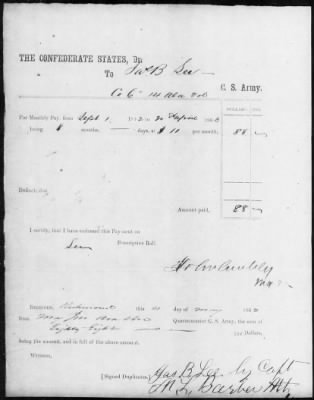 THE CONFEDERATE STATES, Dr.
To Jas B Lee
Co "C" 14 Ala Vols C. S. Army.
DOLLARS. CTS.
For Monthly Pay, from Sept 1, 1862 to 30 April 1863
being 8 months, — days, at $ 11 per month, 88 —
Deduct, for
Amount paid, 88 —
I certify, that I have endorsed this Payment on
Descriptive Roll.
RECEIVED, Richmond this day of May 1863
from Quartermaster C. S. Army, the sum of
Eighty Eight Dollars,
being the amount, and in full of the above account.
Witness,
[Signed Duplicates.] Jas. B. Lee by Capt
M. L. Barber Atty